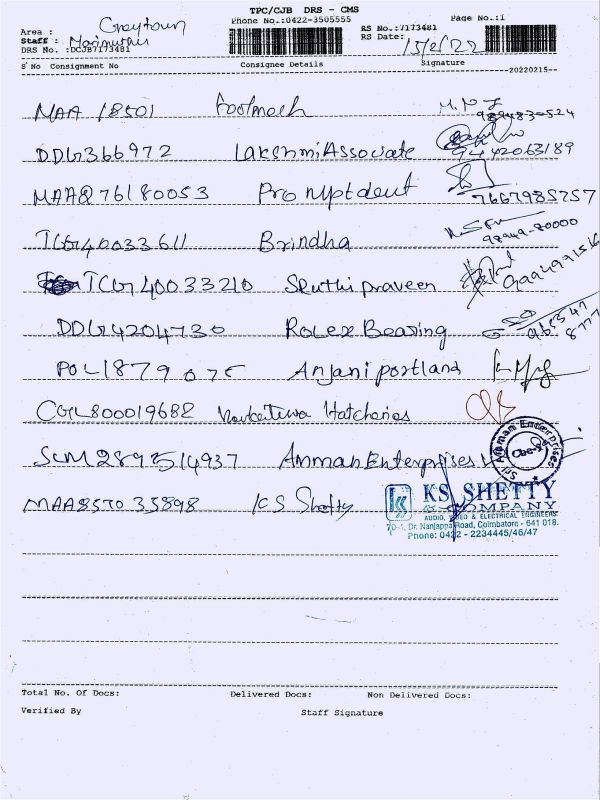 TPC/CJB DRS - CMS
Phone No.:0422-3505555
Page No.:1
Area :
Staff :
DRS No. :DCJB7173481
RS No.:7173481
RS Date: 15/2/22
S'No Consignment No Consignee Details Signature
--20220215--
MAA 18501 footmash
9894830524
DDG366972 Lakshmi Associate 9442063189
MAAQ76180053 Promptdent 7667985757
TCG40033611 Brindha 98944-80000
TCG40033210 Sruthi praveen
DDG4204730 Rolex Bearing
POL1879075 Anjani portland
CGL800019682 Hatcheries
SLM289514937 Amman Enterprises
Sri Amman Enterprises
Cbe
MAA8570 35898 K S Shetty
KS SHETTY
& COMPANY
AUDIO, VIDEO & ELECTRICAL ENGINEERS
70-1, Dr. Nanjappa Road, Coimbatore - 641 018.
Phone: 0422 - 2234445/46/47
Total No. Of Docs: Delivered Docs: Non Delivered Docs:
Verified By Staff Signature